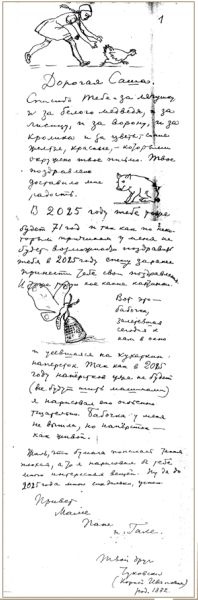 1
Дорогая Саша.
Спасибо тебе и за лягушку
и за белого медведя, и за
лисицу, и за ворону, и за
кролика и за цветы, синие
желтые, красные, - которыми
окружено твое письмо. Твое
поздравление
доставило мне
радость.
В 2025 году тебе уже
будет 71 год и так как по неко-
торым причинам у меня не
будет возможности поздравить
тебя в 2025 году спешу заранее
принести тебе свои поздравления
И даже
Вот это -
бабочка,
залетевшая
сегодня к
нам в окно
и усевшаяся на кухаркин
наперсток. Так как в 2025
году наперстков уже не будет
(все будут шить машинами)
я нарисовал его особенно
тщательно. Бабочка у меня
не вышла, но наперсток -
как живой.
Жаль, что бумага
а то я нарисовал бы тебе
много интересных вещей. Ну да до
2025 года много
Привет
Маме
Папе
и Гале.
Твой друг
Чуковский
(Корней Иванович)
род. 1882.